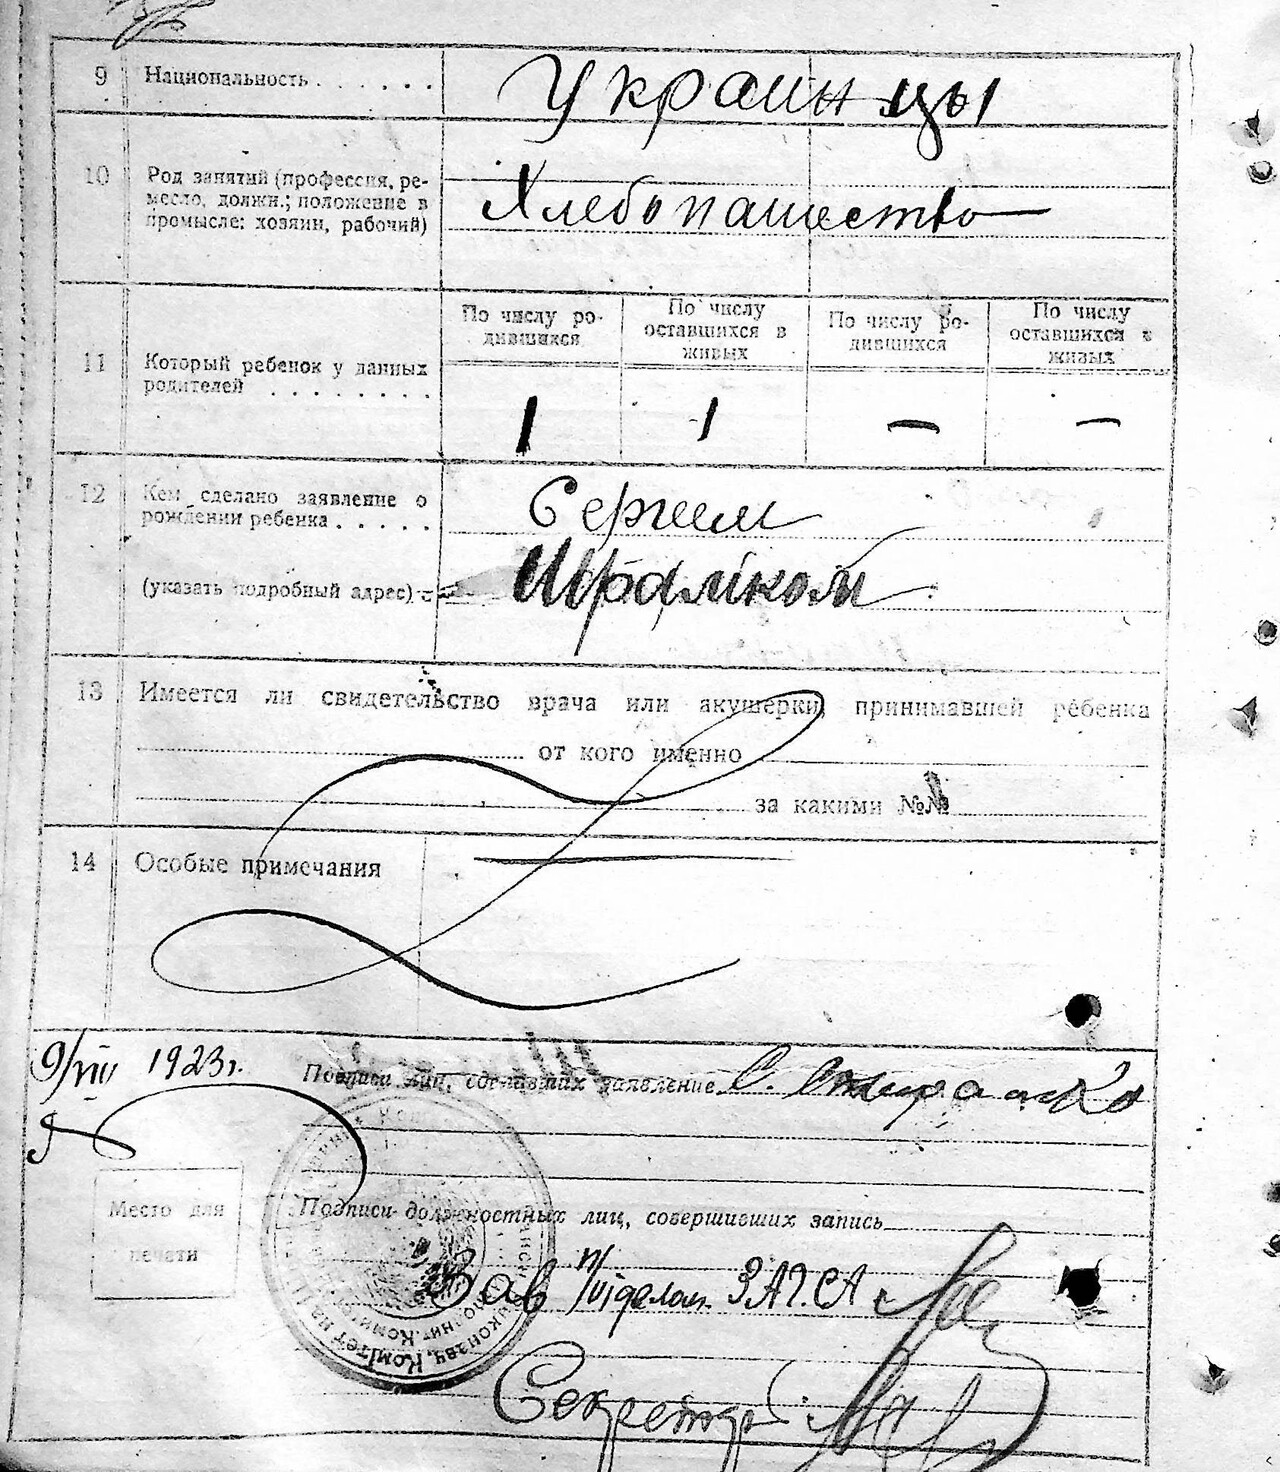 9 Национальность . . . . . . . Украинцы
10 Род занятий (профессия, ре-
месло, должн.; положение в
промысле: хозяин, рабочий)
Хлебопашество
По числу ро-
дившихся
По числу
оставшихся в
живых
По числу ро-
дившихся
По числу
оставшихся в
живых
11 Который ребенок у данных
родителей . . . . . . . .
1 1 — —
12 Кем сделано заявление о
рождении ребенка . . . . .
Сергеем
(указать подробный адрес)
13 Имеется ли свидетельство врача или акушерки, принимавшей ребенка
от кого именно
за какими №№
14 Особые примечания —
9/VIII 1923г.
Подписи лиц, сделавших заявление С.
Место для
печати
Подписи должностных лиц, совершивших запись
Зав п/відделом ЗАГСА
Секретарь